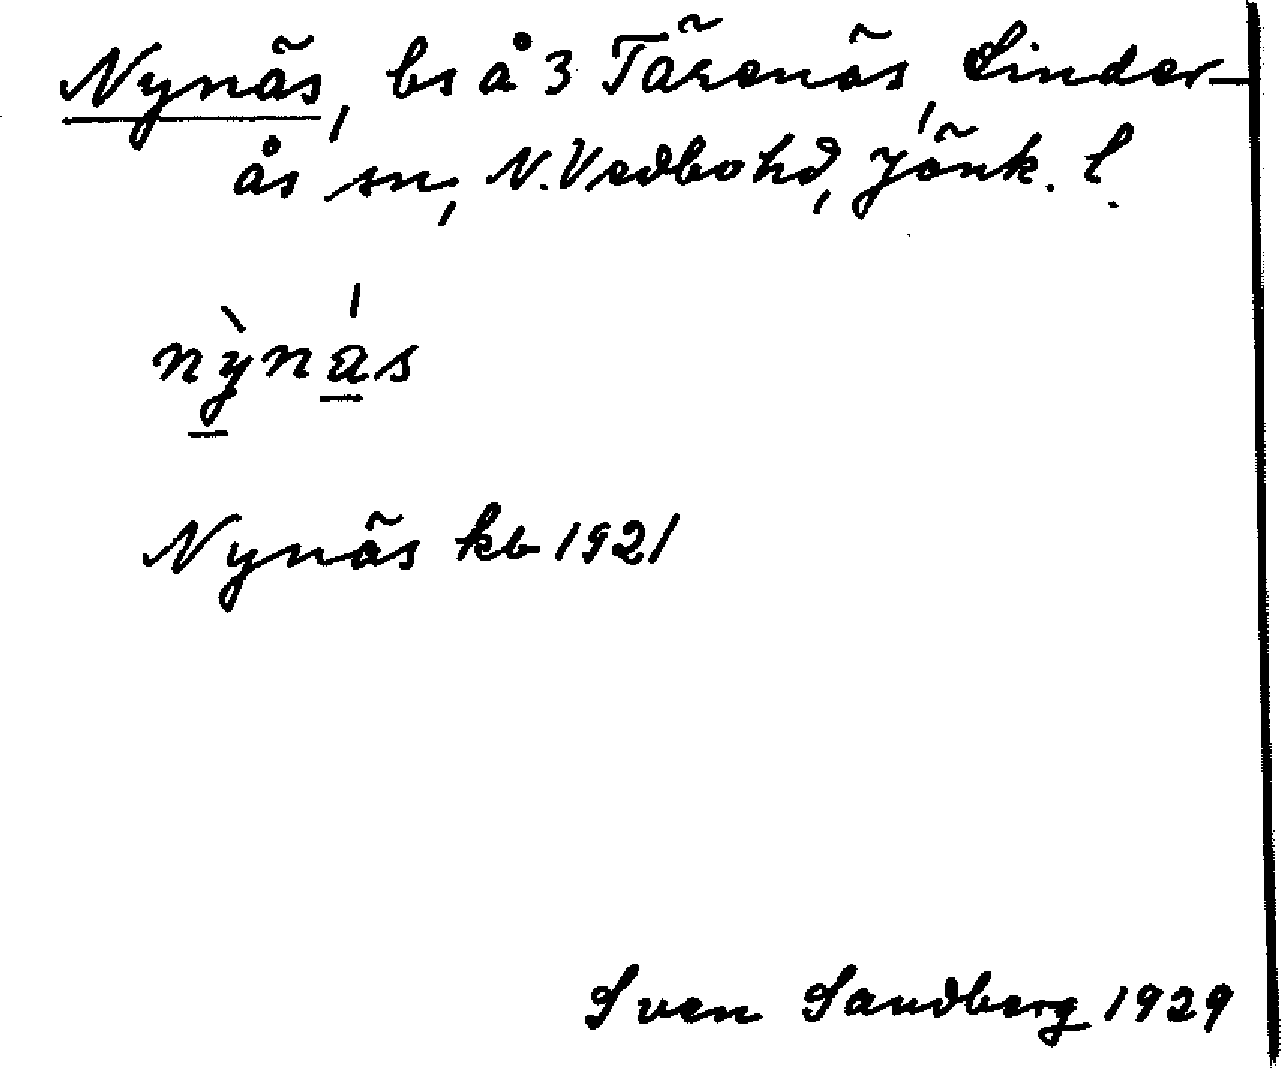 Nynäs, bs å 3 Täxenäs, Linder-
ås sn, N. Vedbohd, Jönk. l.
nỳnás
Nynäs kb 1921
Sven Sandberg 1929